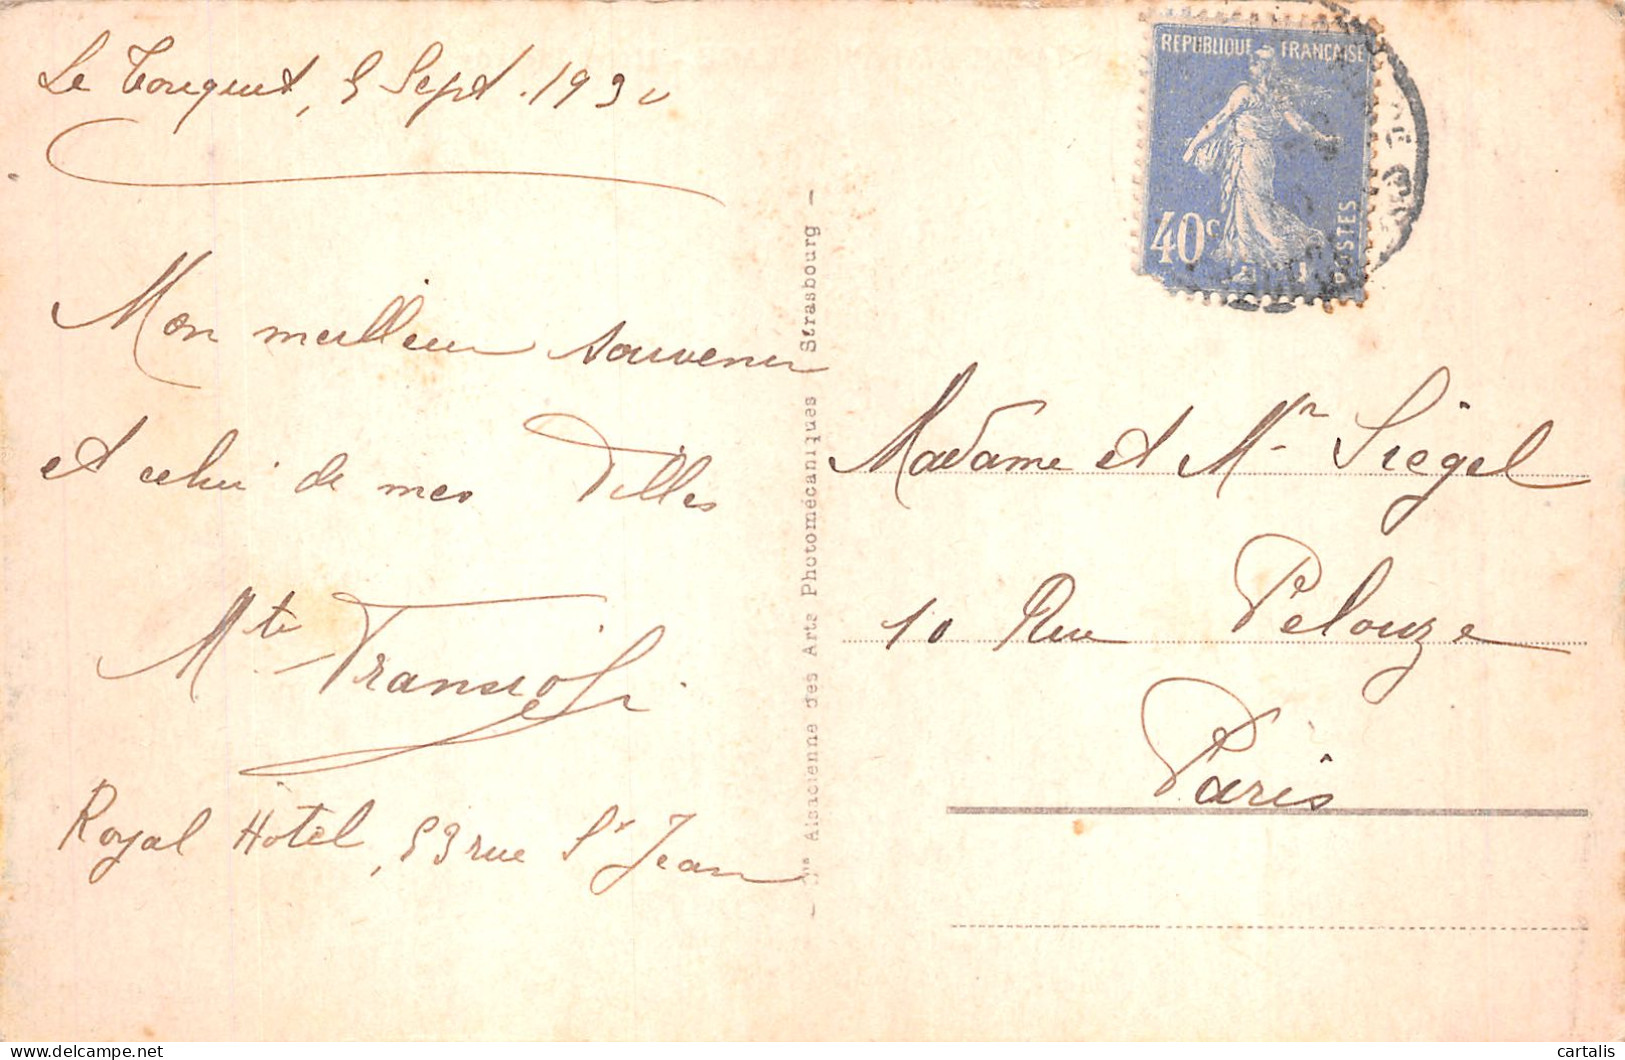 Le Touquet, 5 Sept. 1930
Mon meilleur souvenir
et celui de mes filles
Mte
Royal Hôtel, 53 rue St Jean
– Cie Alsacienne des Arts Photomécaniques Strasbourg –
REPUBLIQUE FRANÇAISE
40c
POSTES
Madame et Mr Siegel
10 Rue Pelouze
Paris
cartalis